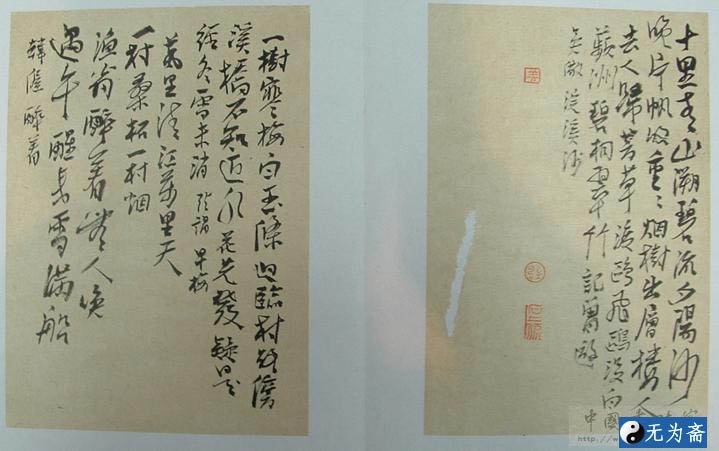 十里青山溯碧流夕陽沙
晚片帆收重〻烟樹出層樓人
去人歸芳草渡鷗飛鷗没白
蘋洲碧桐翠竹記曾遊
吳儆 浣溪沙
一樹寒梅白玉條迥臨村路傍
溪橋不知近水花先發疑是
經冬雪未消 張謂 早梅
萬里清江萬里天
一村桑柘一村烟
漁翁醉着無人喚
過午醒來雪滿船
韓偓 醉着
无为斋